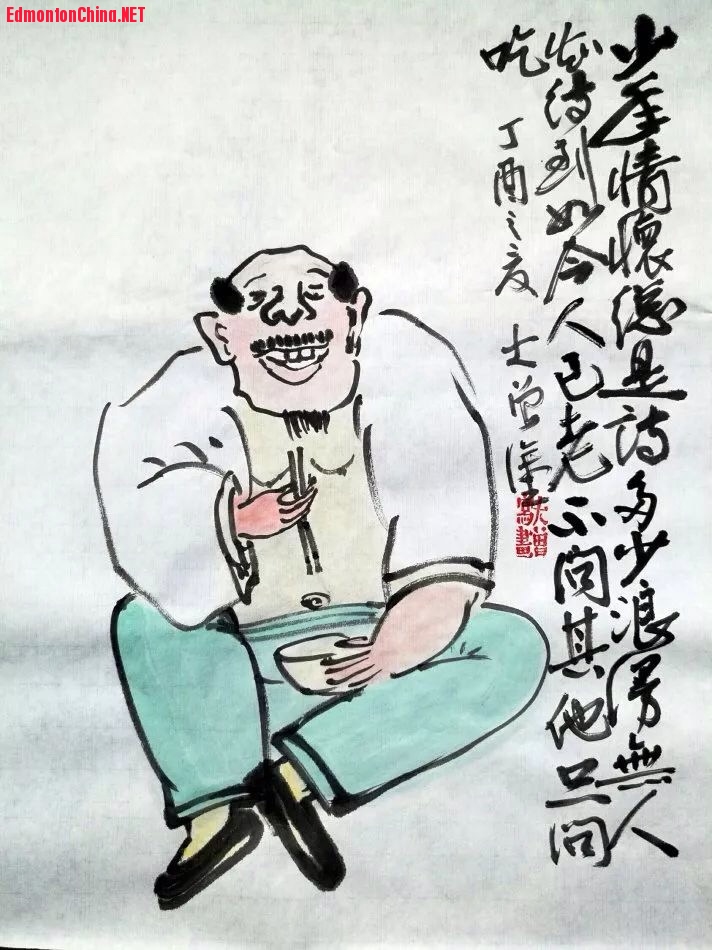 EdmontonChina.NET
少年情懷總是詩多少浪漫無人
知待到如今人已老不问其他只问
吃
丁酉之夏